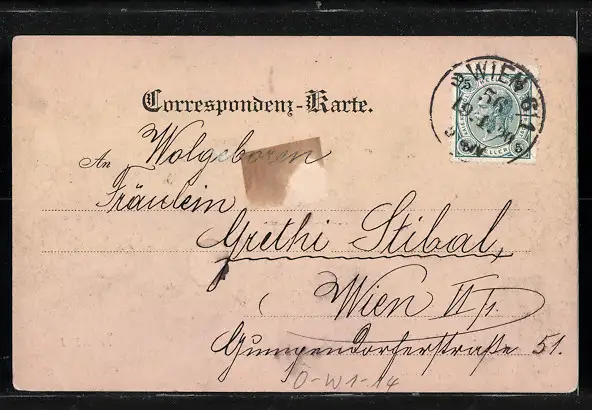 WIEN 6/1
56
5
HELLER
Correspondenz-Karte.
An Wolgeboren
Fräulein
Grethi Stibal,
Wien VI/1.
Gumpendorferstraße 51.
O-W1-14